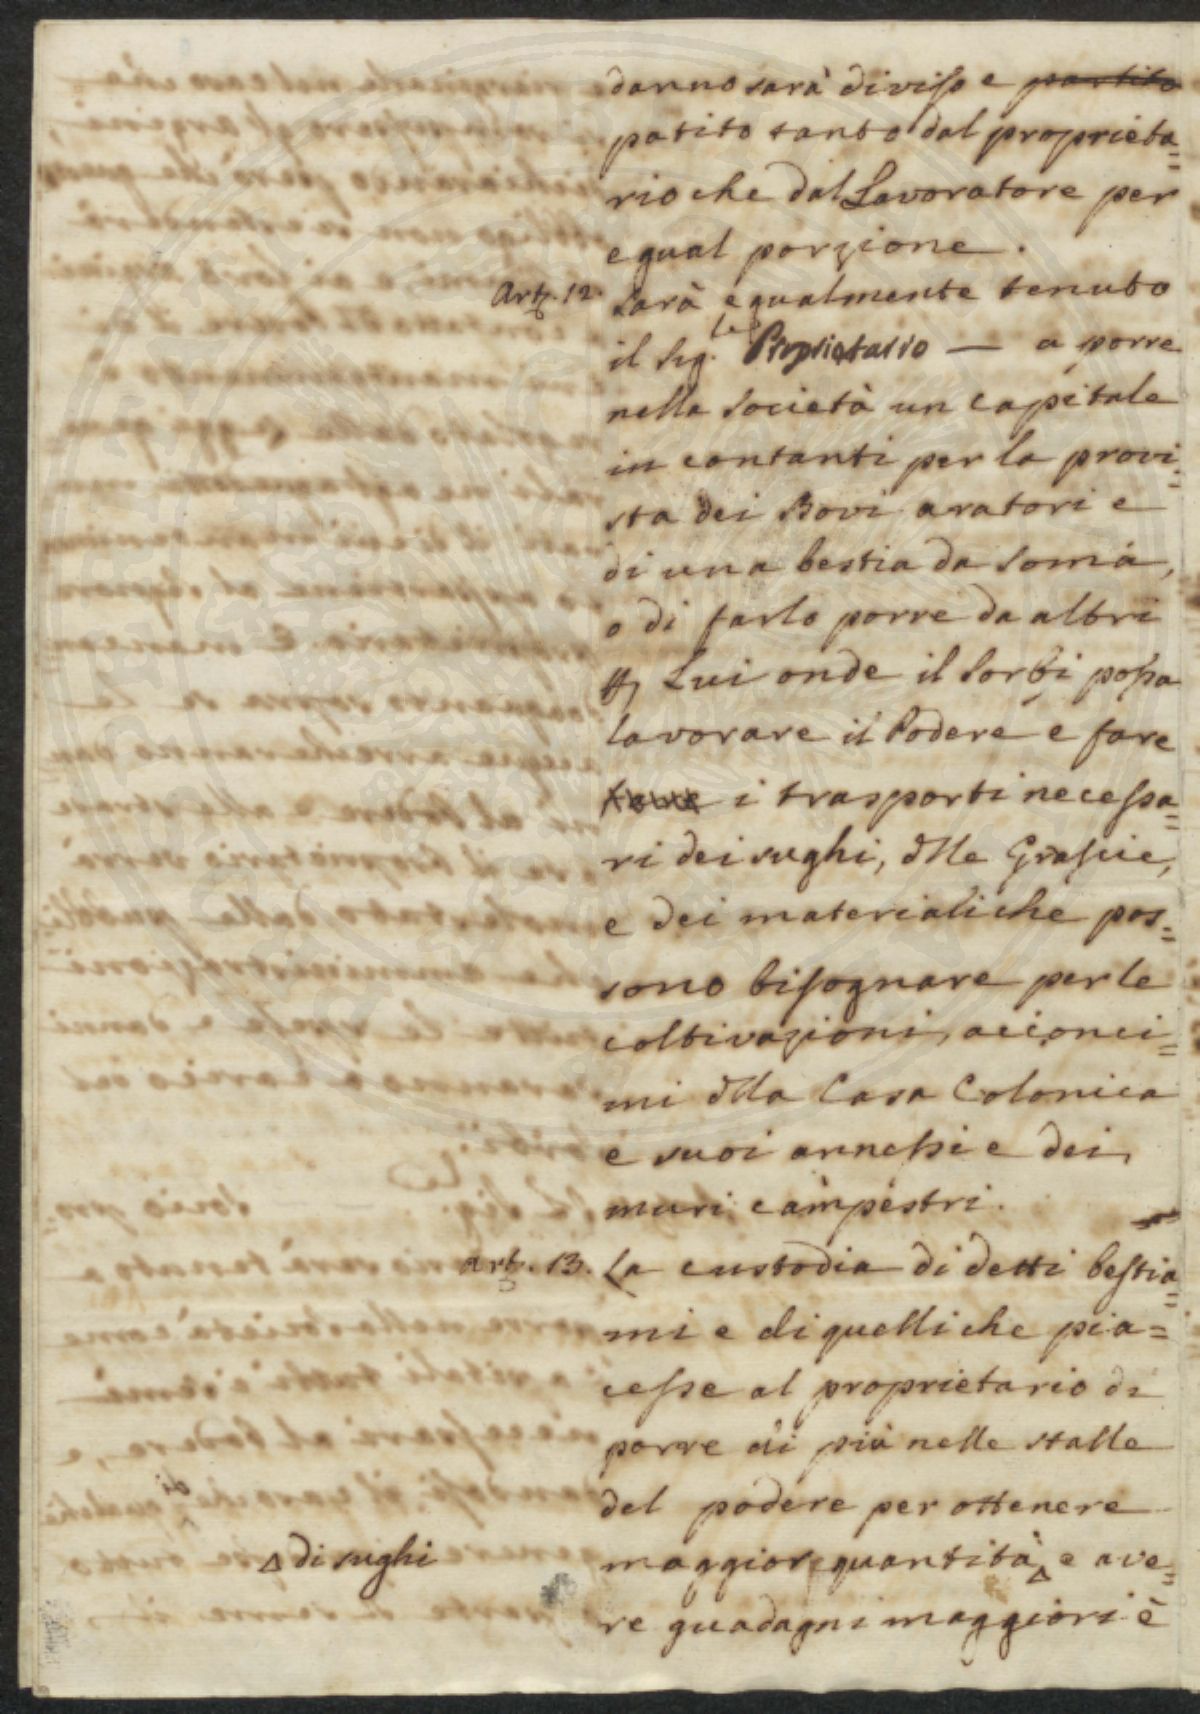 danno sarà diviso e partito
patito tanto dal proprieta=
rio che dal Lavoratore per
egual porzione.
Art. 12. Sarà egualmente tenuto
il Sig.le Proprietario — a porre
nella Società un capitale
in contanti per la provi=
sta dei Bovi aratori e
di una bestia da soma,
o di farlo porre da altri
p Lui onde il Sorbi possa
lavorare il Podere e fare
i trasporti necessa=
ri dei sughi, dlle Grascie,
e dei materiali che pos=
sono bisognare per le
coltivazioni, acconci=
mi dlla Casa Colonica
e suoi annessi e dei
muri campestri.
Art. 13. La custodia di detti bestia=
mi e di quelli che pia=
cesse al proprietario di
porre di più nelle stalle
del podere per ottenere
maggior quantità Δ e ave=
Δ di sughi
re guadagni maggiori è